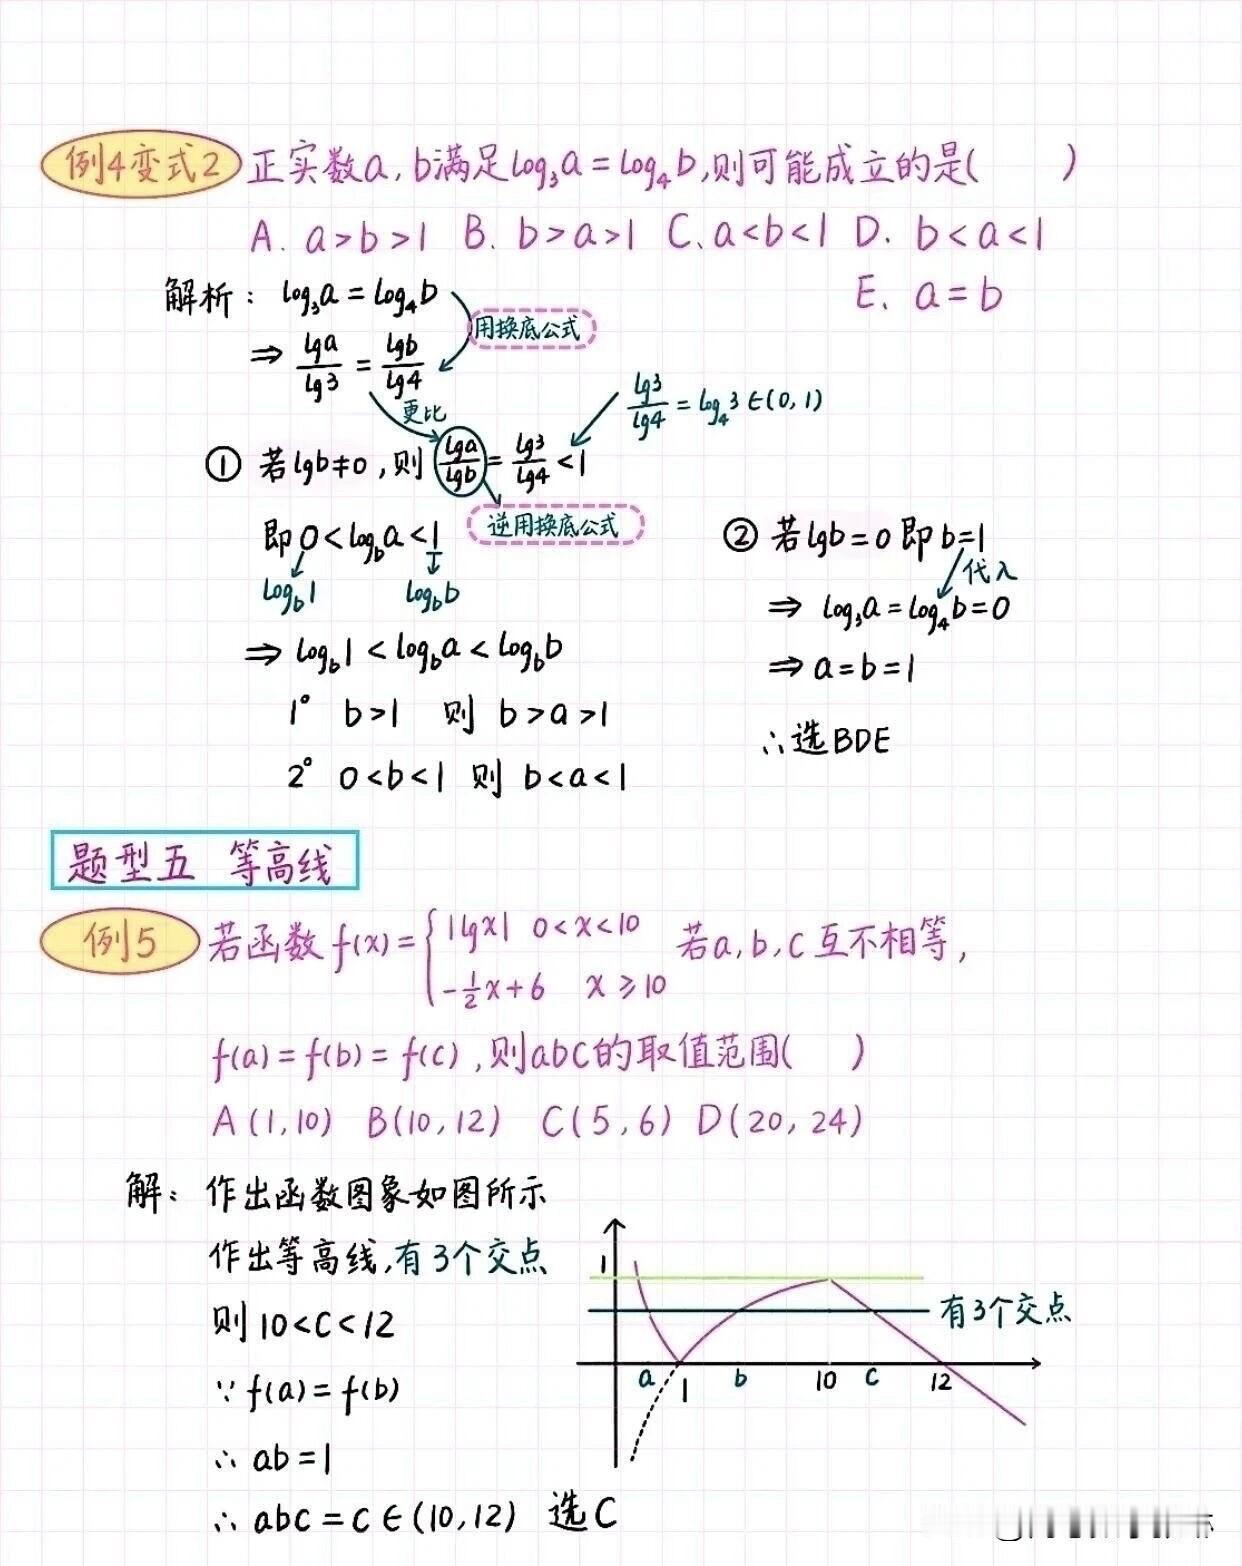 例4变式2 正实数a,b满足log₃a=log₄b,则可能成立的是( )
A. a>b>1 B. b>a>1 C. a<b<1 D. b<a<1
E. a=b
解析: log₃a=log₄b
用换底公式
⇒ lga/lg3 = lgb/lg4
更比
lg3/lg4 = log₄3∈(0,1)
① 若lgb≠0,则 lga/lgb = lg3/lg4 <1
逆用换底公式
即0<log_b a<1
log_b 1 log_b b
⇒ log_b 1 < log_b a < log_b b
1° b>1 则 b>a>1
2° 0<b<1 则 b<a<1
② 若lgb=0即b=1
代入
⇒ log₃a=log₄b=0
⇒ a=b=1
∴选BDE
题型五 等高线
例5 若函数f(x)={|lgx| 0<x<10 若a,b,c互不相等,
-1/2x+6 x≥10
f(a)=f(b)=f(c),则abc的取值范围( )
A(1,10) B(10,12) C(5,6) D(20,24)
解: 作出函数图象如图所示
作出等高线,有3个交点
则10<c<12
∵f(a)=f(b)
∴ab=1
∴abc=c∈(10,12) 选C
1
有3个交点
a 1 b 10 c 12